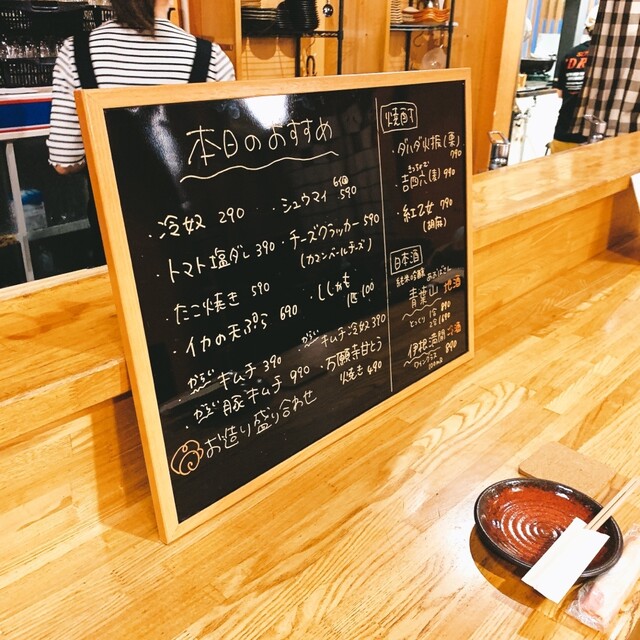 本日のおすすめ
・冷奴 290
・トマト塩ダレ 390
・たこ焼き 590
・イカの天ぷら 690
・キムチ 390
・豚キムチ 990
お造り盛り合わせ
・シュウマイ 6個 590
・チーズクラッカー 590
(カマンベールチーズ)
・ししゃも 1匹 100
・キムチ冷奴 390
・万願寺甘とう
焼き 490
焼酎
・ダバダ火振(栗) 790
・吉四六(麦) 990
・紅乙女 790
(胡麻)
日本酒
純米吟醸
青葉山 地酒
とっくり
伊根満開
ワイングラス
100ml 890